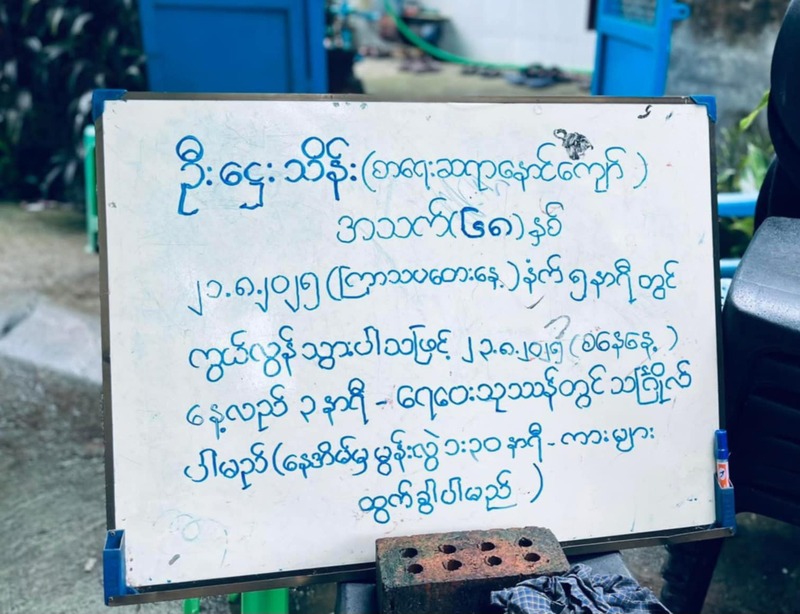 ဦးဌေးသိန်း (စာရေးဆရာနောင်ကျော်)
အသက်(၆၈)နှစ်
၂၁.၈.၂၀၂၅ (ကြာသပတေးနေ့) နံက် ၅ နာရီ တွင်
ကွယ်လွန် သွားပါသဖြင့် ၂၃.၈.၂၀၂၅ (စနေနေ့)
နေ့လည် ၃ နာရီ - ရေဝေးသုဿန်တွင် သင်္ဂြိုလ်
ပါမည် (နေအိမ်မှ မွန်းလွဲ ၁:၃၀ နာရီ - ကားများ
ထွက်ခွါပါမည်)